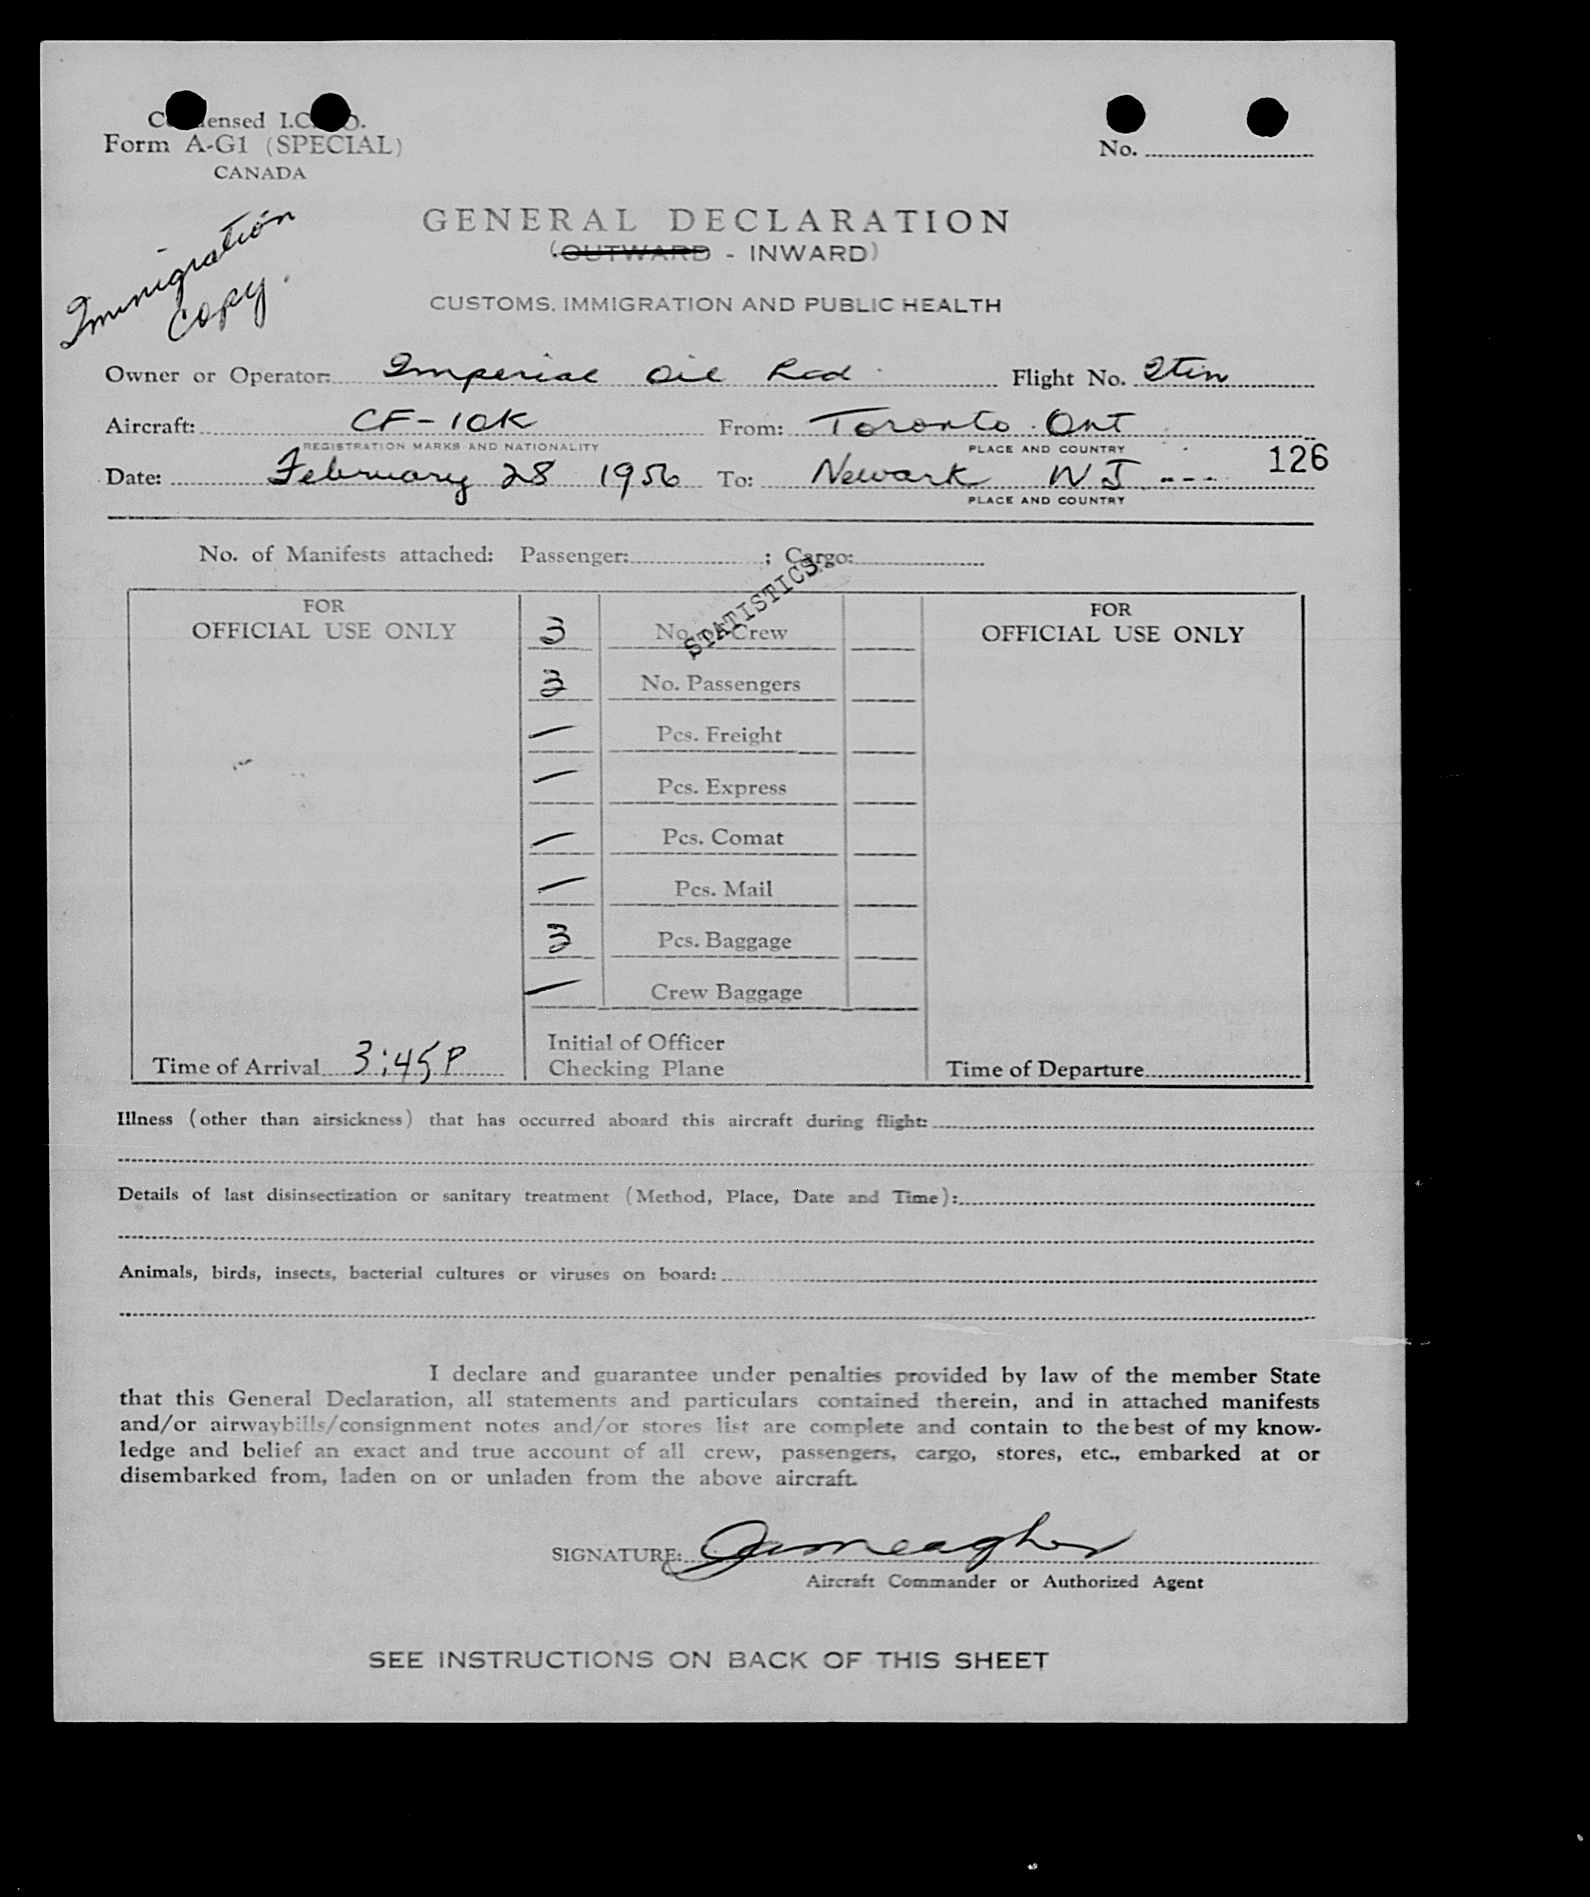 Condensed I.C.A.O.
Form A-G1 (SPECIAL)
CANADA
No.
Immigration
copy.
GENERAL DECLARATION
(OUTWARD - INWARD)
CUSTOMS, IMMIGRATION AND PUBLIC HEALTH
Owner or Operator: Imperial Oil Flight No. Itin
Aircraft: CF-IOK From: Toronto. Ont
REGISTRATION MARKS AND NATIONALITY PLACE AND COUNTRY
126
Date: February 28 1956 To: Newark NJ ---
PLACE AND COUNTRY
No. of Manifests attached: Passenger: ; Cargo:
STATISTICS
FOR FOR
OFFICIAL USE ONLY 3 No. of Crew OFFICIAL USE ONLY
3 No. Passengers
— Pcs. Freight
— Pcs. Express
— Pcs. Comat
— Pcs. Mail
3 Pcs. Baggage
— Crew Baggage
Initial of Officer
Time of Arrival 3:45P Checking Plane Time of Departure
Illness (other than airsickness) that has occurred aboard this aircraft during flight:
Details of last disinsectization or sanitary treatment (Method, Place, Date and Time):
Animals, birds, insects, bacterial cultures or viruses on board:
I declare and guarantee under penalties provided by law of the member State
that this General Declaration, all statements and particulars contained therein, and in attached manifests
and/or airwaybills/consignment notes and/or stores list are complete and contain to the best of my know-
ledge and belief an exact and true account of all crew, passengers, cargo, stores, etc., embarked at or
disembarked from, laden on or unladen from the above aircraft.
SIGNATURE:
Aircraft Commander or Authorized Agent
SEE INSTRUCTIONS ON BACK OF THIS SHEET